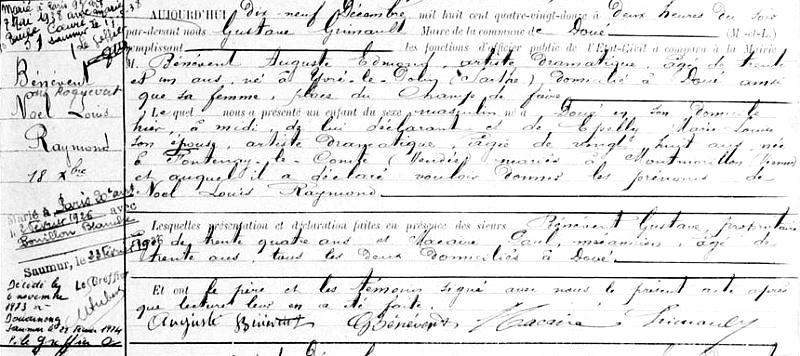 Marié à Paris 9e
7 Mai 1938 avec
Saumur
Le Greffier
Bénévent
dit Roquevert
Noël Louis
Raymond
18 Xbre
Marié à Paris 20e arrt
le 2 Février 1926 avec
Bouillon Blanche
Saumur, le 23 Février 1926
Le Greffier
Décédé le
6 novembre
1973 à
Douarnenez
Saumur le 22 février 1974
P. le greffier
AUJOURD'HUI dix neuf Décembre mil huit cent quatre-vingt-douze à deux heures du soir
par-devant nous Gustave Grimault Maire de la commune de Doué (M-et-L.)
remplissant les fonctions d'Officier public de l'Etat-Civil a comparu à la Mairie
M. Bénévent Auguste Edmond, artiste dramatique, âgé de trente
et un ans, né à Yvré-le-Polin (Sarthe) domicilié à Doué ainsi
que sa femme, place du Champ de foire
Lequel nous a présenté un enfant du sexe masculin né à Doué en son domicile
hier, à midi, de lui déclarant et de Marie Louise
son épouse, artiste dramatique, âgée de vingt huit ans, née
à Fontenay-le-Comte (Vendée) mariés à Montmorillon (Vienne)
et auquel il a déclaré vouloir donner les prénoms de
Noël Louis Raymond
Lesquelles présentation et déclaration faites en présence des sieurs Bénévent Gustave, propriétaire
âgé de trente quatre ans et Macaire Paul, mécanicien, âgé de
trente ans, tous les deux domiciliés à Doué.
Et ont le père et les témoins signé avec nous le présent acte après
que lecture leur en a été faite.
Auguste Bénévent GBénévent Macaire Grimault